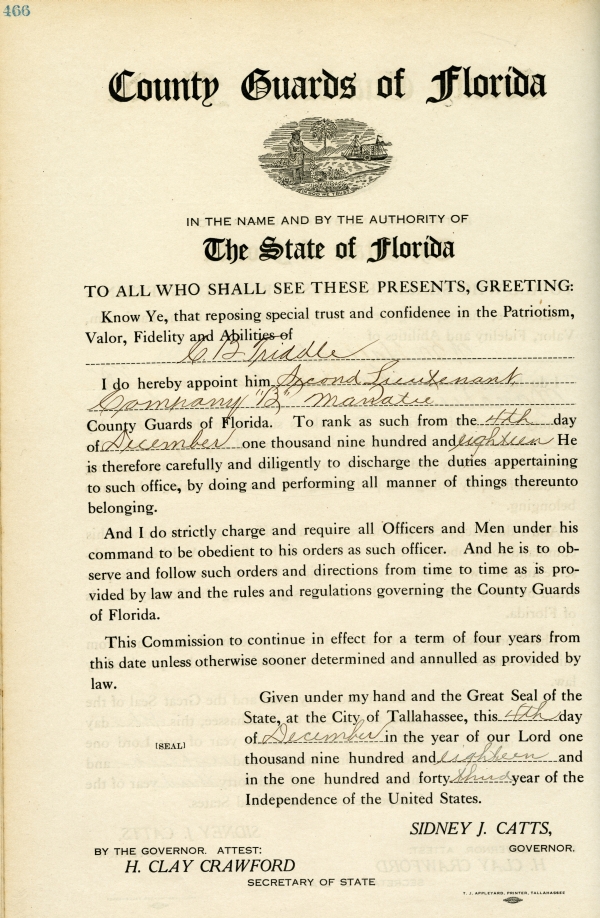 466
County Guards of Florida
IN THE NAME AND BY THE AUTHORITY OF
The State of Florida
TO ALL WHO SHALL SEE THESE PRESENTS, GREETING:
Know Ye, that reposing special trust and confidenee in the Patriotism,
Valor, Fidelity and Abilities of
C B Triddle
I do hereby appoint him Second Lieutenant
Company "B" Manatee
County Guards of Florida. To rank as such from the 4th day
of December one thousand nine hundred and eighteen He
is therefore carefully and diligently to discharge the duties appertaining
to such office, by doing and performing all manner of things thereunto
belonging.
And I do strictly charge and require all Officers and Men under his
command to be obedient to his orders as such officer. And he is to ob-
serve and follow such orders and directions from time to time as is pro-
vided by law and the rules and regulations governing the County Guards
of Florida.
This Commission to continue in effect for a term of four years from
this date unless otherwise sooner determined and annulled as provided by
law.
Given under my hand and the Great Seal of the
State, at the City of Tallahassee, this 4th day
of December in the year of our Lord one
[SEAL]
thousand nine hundred and eighteen and
in the one hundred and forty third year of the
Independence of the United States.
SIDNEY J. CATTS,
BY THE GOVERNOR. ATTEST: GOVERNOR.
H. CLAY CRAWFORD
SECRETARY OF STATE
T. J. APPLEYARD, PRINTER, TALLAHASSEE